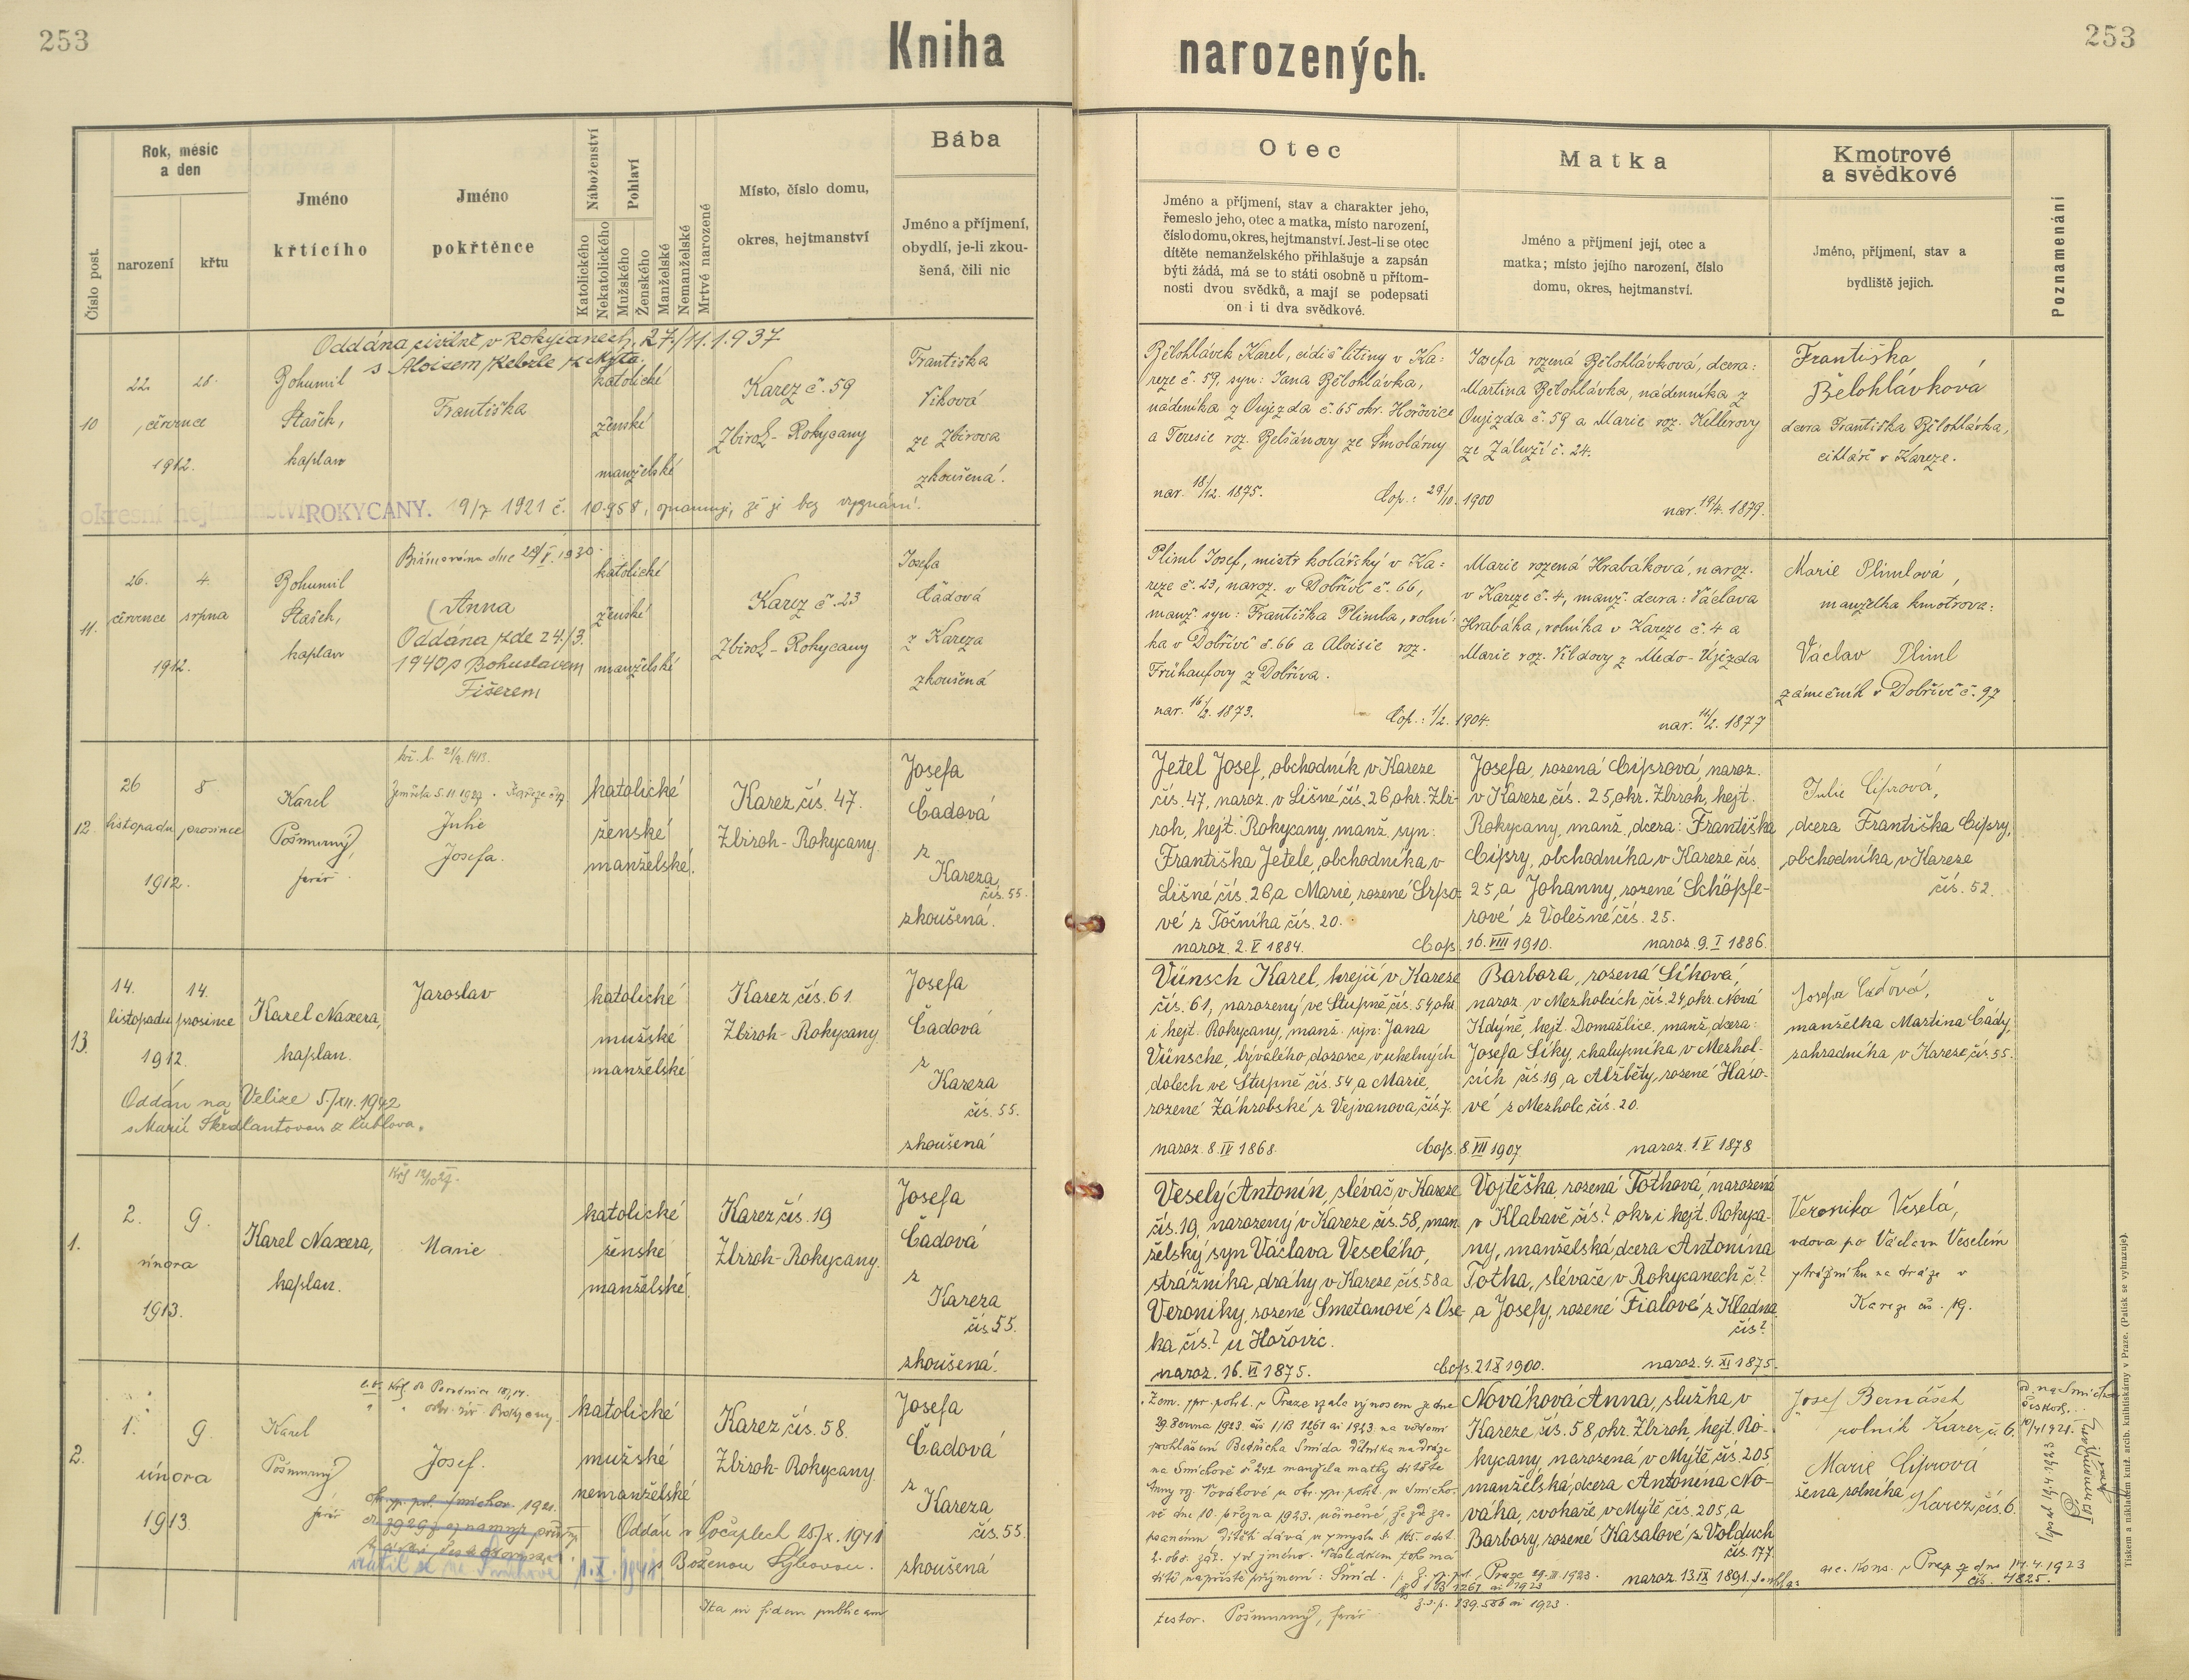 253
Kniha
narozených.
253
Číslo post.
Rok, měsíc
a den
narození
křtu
Jméno
křtícího
Jméno
pokřtěnce
Náboženství
Katolického
Nekatolického
Pohlaví
Mužského
Ženského
Manželské
Nemanželské
Mrtvé narozené
Místo, číslo domu,
okres, hejtmanství
Bába
Jméno a příjmení,
obydlí, je-li zkou-
šená, čili nic
Otec
Jméno a příjmení, stav a charakter jeho,
řemeslo jeho, otec a matka, místo narození,
číslo domu, okres, hejtmanství. Jest-li se otec
dítěte nemanželského přihlašuje a zapsán
býti žádá, má se to státi osobně u přítom-
nosti dvou svědků, a mají se podepsati
on i ti dva svědkové.
Matka
Jméno a příjmení její, otec a
matka; místo jejího narození, číslo
domu, okres, hejtmanství.
Kmotrové
a svědkové
Jméno, příjmení, stav a
bydliště jejich.
Poznamenání
Oddána civilně v Rokycanech, 27./11.1.937
s Aloisem
10
22. 28.
července
1912.
Bohumil
Stašek,
kaplan
Františka
katolické
ženské
manželské
Karez č. 59
Zbiroh - Rokycany
Františka
Viková
ze Zbirova
zkoušená.
okresní hejtmanství ROKYCANY. 19/7 1921 č. 10.958, oznamuje, že je bez vyznání.
Bělohlávek Karel, cídič litiny v Ka:
reze č. 59, syn: Jana Bělohlávka,
nádeníka z Oujezda č. 65 okr. Hořovice
a Teresie roz. Belšánovy ze Smolárny
nar. 18/12. 1875.
Cop.: 29/10. 1900
Josefa rozená Bělohlávková, dcera:
Martina Bělohlávka, nádenníka z
Oujezda č. 59 a Marie roz. Kellerovy
ze Záluží č. 24.
nar. 19/4. 1879.
Františka
Bělohlávková
dcera Františka Bělohlávka,
cihláře v Kareze.
11.
26. 4.
července srpna
1912.
Bohumil
Stašek,
kaplan
Biřmována dne 28/V. 1930.
Anna
Oddána zde 24/3.
1940 s Bohuslavem
Fišerem
katolické
ženské
manželské
Karez č. 23
Zbiroh - Rokycany
Josefa
Čadová
z Kareza
zkoušená
Pliml Josef, mistr kolářský v Ka:
reze č. 23, naroz. v Dobřívě č. 66,
manž. syn: Františka Plimla, rolní:
ka v Dobřívě č. 66 a Aloisie roz.
Frühaufovy z Dobříva.
nar. 16/2. 1873.
Cop.: 1/2. 1904.
Marie rozená Hrabáková, naroz.
v Kareze č. 4, manž. dcera: Václava
Hrabáka, rolníka v Kareze č. 4 a
Marie roz. Vildovy z Medo-Újezda
nar. 11/2. 1877
Marie Plimlová,
manželka kmotrova:
Václav Pliml
zámečník v Dobřívě č. 97
12.
26 8
listopadu prosince
1912.
Karel
Pošmurný,
farář
Zemřela 5.11.1927
Julie
Josefa.
katolické
ženské
manželské.
Karez, čís. 47.
Zbiroh - Rokycany.
Josefa
Čadová
z
Kareza,
čís. 55.
zkoušená.
Jetel Josef, obchodník v Kareze
čís. 47, naroz. v Lišné čís. 26, okr. Zbi-
roh, hejt. Rokycany, manž. syn:
Františka Jetele, obchodníka, v
Lišné čís. 26 a Marie, rozené Srpo-
vé z Točníka čís. 20.
naroz. 2. V 1884.
Cop. 16. VIII 1910.
Josefa, rozená Ciprová, naroz.
v Kareze čís. 25, okr. Zbiroh, hejt.
Rokycany, manž. dcera: Františka
Cipry, obchodníka, v Kareze čís.
25, a Johanny, rozené Schöpfe-
rové z Volešné, čís. 25.
naroz. 9. I 1886.
Julie Ciprová,
dcera Františka Cipry,
obchodníka, v Kareze
čís. 52.
13.
14. 14.
listopadu prosince
1912.
Karel Naxera,
kaplan.
Jaroslav
katolické
mužské
manželské
Karez čís. 61.
Zbiroh - Rokycany.
Josefa
Čadová
z
Kareza
čís. 55.
zkoušená
Oddán na Velíze 5./XII. 1942
s Marií
Vünsch Karel, krejčí v Kareze
čís. 61, narozený ve Stupně čís. 54, okr.
i hejt. Rokycany, manž. syn: Jana
Vünsche, bývalého dozorce v uhelných
dolech ve Stupně čís. 54, a Marie,
rozené Záhrobské z Vejvanova, čís. 7.
naroz. 8. IV 1868.
Cop. 8. VII 1907
Barbora, rozená Síková,
naroz. v Mezholcích čís. 24, okr. Nová
Kdýně, hejt. Domažlice, manž. dcera:
Josefa Síky, chalupníka v Mezhol-
cích čís. 19, a Alžběty, rozené Haso-
vé z Mezholc, čís. 20.
naroz. 1. V 1878
Josefa Čadová,
manželka Martina Čády,
zahradníka v Kareze, čís. 55.
1.
2. 9.
února
1913.
Karel Naxera,
kaplan.
Marie
katolické
ženské
manželské.
Karez čís. 19
Zbiroh - Rokycany.
Josefa
Čadová
z
Kareza
čís. 55.
zkoušená.
Veselý Antonín, slévač, v Kareze
čís. 19, narozený v Kareze čís. 58, man-
želský syn Václava Veselého,
strážníka dráhy v Kareze, čís. 58 a
Veroniky, rozené Smetanové z Ose-
ka čís. ? u Hořovic.
naroz. 16. VI 1875.
Cop. 21. X 1900.
Vojtěška, rozená Tothová, narozená
v Klabavě čís. ? okr. i hejt. Rokyca-
ny, manželská dcera Antonína
Totha, slévače v Rokycanech č. ?
a Josefy, rozené Fialové z Kladna
čís. ?
naroz. 4. XI 1875.
Veronika Veselá,
vdova po Václavu Veselém
strážníku na dráze v
Kareze čís. 19.
2.
1. 9.
února
1913
Karel
Pošmurný
farář
Josef.
katolické
mužské
nemanželské
Karez čís. 58.
Zbiroh - Rokycany.
Josefa
Čadová
z
Kareza
čís. 55.
zkoušená
Oddán v Počaplech 25./X. 1941
s Boženou
Zem. spr. polit. v Praze vzala výnosem ze dne
29. března 1923 čís. 1/B 1261 ai 1923 na vědomí
prohlášení Bedřicha Šmída dělníka na dráze
na Smíchově č. 242 manžela matky dítěte
Anny roz. Novákové u okr. spr. polit. v Smícho-
vě dne 10. března 1923, učiněné,
dítě napříště příjmení: Šmíd.
Nováková Anna, služka, v
Kareze čís. 58, okr. Zbiroh, hejt. Ro-
kycany, narozená v Mýtě, čís. 205,
manželská dcera Antonína No-
váka, cvokaře, v Mýtě, čís. 205, a
Barbory, rozené Kasalové z Volduch
čís. 177.
naroz. 13. IX 1891.
Josef Bernášek
rolník Karez č. 6.
Marie Ciprová
žena rolníka
Karez, čís. 6.
arc. kons. v Praze ze dne 14.4.1923
čís. 4825.
Ita in fidem publicam
testor. Pošmurný, farář
Tiskem a nákladem kníž. arcib. knihtiskárny v Praze. (Patisk se vyhrazuje).